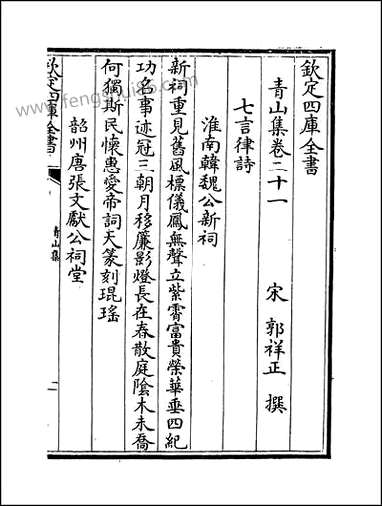 欽定四庫全書
青山集卷二十一
宋 郭祥正 撰
七言律詩
淮南韓魏公新祠
新祠重見舊風標儀鳳無聲立紫霄富貴榮華垂四紀
功名事迹冠三朝月移簾影燈長在春散庭陰木未喬
何獨斯民懷惠愛帝詞天篆刻琨瑤
韶州唐張文獻公祠堂
欽定四庫全書
青山集